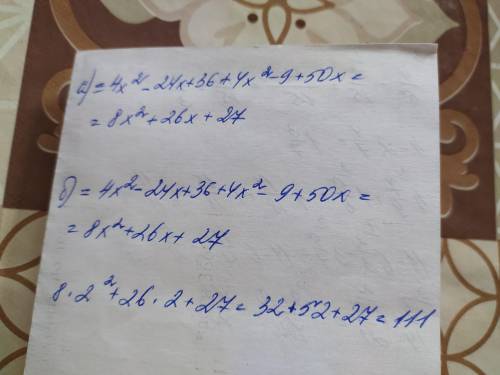 а) = 4x² - 24x + 36 + 4x² - 9 + 50x =
= 8x² + 26x + 27
б) = 4x² - 24x + 36 + 4x² - 9 + 50x =
= 8x² + 26x + 27
8 · 2² + 26 · 2 + 27 = 32 + 52 + 27 = 111